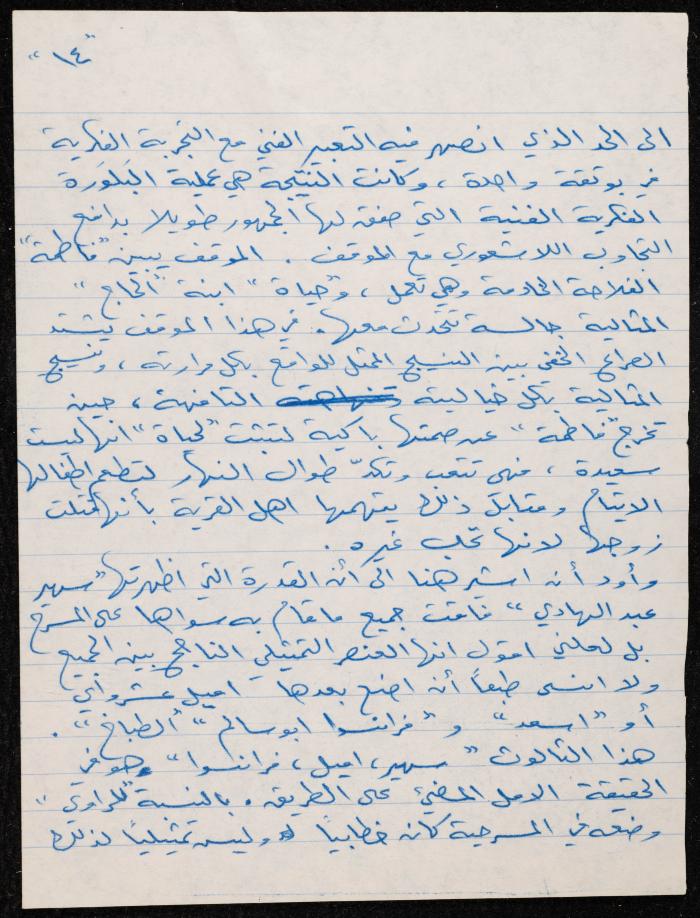 "١٤"
الى الحد الذي انصهر فيه التعبير الفني مع التجربة الفكرية
في بوتقة واحدة ، وكانت النتيجة هي عملية البَلوَرة
الفكرية الفنية التي صفق لها الجمهور طويلا بدافع
التجاوب اللاشعوري مع الموقف . الموقف يبين "فاطمة"
الفلاحة الخادمة وهي تعمل ، و"حياة" ابنة "الحاج"
المثالية جالسة تتحدث معها . في هذا الموقف يشتد
الصراع الخفي بين النسيج الممثل للواقع بكل مرارته ، ونسيج
المثالية بكل خياليته التافهة ، حين
تخرج "فاطمة" عن صمتها باكية لتثبت "لحياة" انها ليست
سعيدة ، فهي تتعب وتكدّ طوال النهار لتطعم اطفالها
الايتام ومقابل ذلك يتهمها اهل القرية بأنها قتلت
زوجها لانها تحب غيره .
وأود أن اشير هنا الى أن القدرة التي اظهرتها "سهير
عبد الهادي" فاقت جميع ما قام به سواها على المسرح
بل لعلني اقول انها العنصر التمثيلي الناجح بين الجميع
ولا انسى طبعاً أن اضع بعدها اميل عشراوي
أو "اسعد" و "فرانسوا ابو سالم" "الطباخ" .
هذا الثالوث "سهير ، اميل ، فرانسوا" هو في
الحقيقة الامل المضيء على الطريق . بالنسبة "للراوي"
وضعه في المسرحية كان خطابياً وليس تمثيلياً لذلك